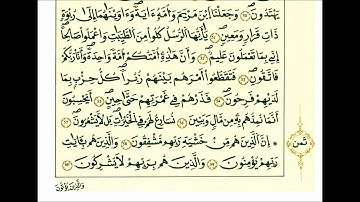 يَهْتَدُونَ وَجَعَلْنَا اَبْنَ مَرْيَمَ وَأُمَّهُۥ ءَايَةً وَءَاوَيْنَٰهُمَا إِلَىٰ رُبْوَةٍ
ذَاتِ قَرَارٍ وَمَعِينٍ يَٰأَيُّهَا اَلرُّسُلُ كُلُوا مِنَ اَلطَّيِّبَٰتِ وَاعْمَلُوا صَٰلِحًا
إِنِّي بِمَا تَعْمَلُونَ عَلِيمٌ وَأَنَّ هَٰذِهِۦ أُمَّتُكُمْ أُمَّةً وَٰحِدَةً وَأَنَا رَبُّكُمْ
فَاتَّقُونِ فَتَقَطَّعُوا أَمْرَهُم بَيْنَهُمْ زُبُرًا كُلُّ حِزْبٍ بِمَا
لَدَيْهِمْ فَرِحُونَ فَذَرْهُمْ فِي غَمْرَتِهِمْ حَتَّىٰ حِينٍ أَيَحْسِبُونَ
أَنَّمَا نُمِدُّهُم بِهِۦ مِن مَّالٍ وَبَنِينَ نُسَارِعُ لَهُمْ فِي اِلْخَيْرَٰتِ بَل لَّا يَشْعُرُونَ
ثمن
إِنَّ اَلَّذِينَ هُم مِّنْ خَشْيَةِ رَبِّهِم مُّشْفِقُونَ وَالَّذِينَ هُم بِـَٔايَٰتِ
رَبِّهِمْ يُؤْمِنُونَ وَالَّذِينَ هُم بِرَبِّهِمْ لَا يُشْرِكُونَ
وَالَّذِينَ يُؤْتُونَ